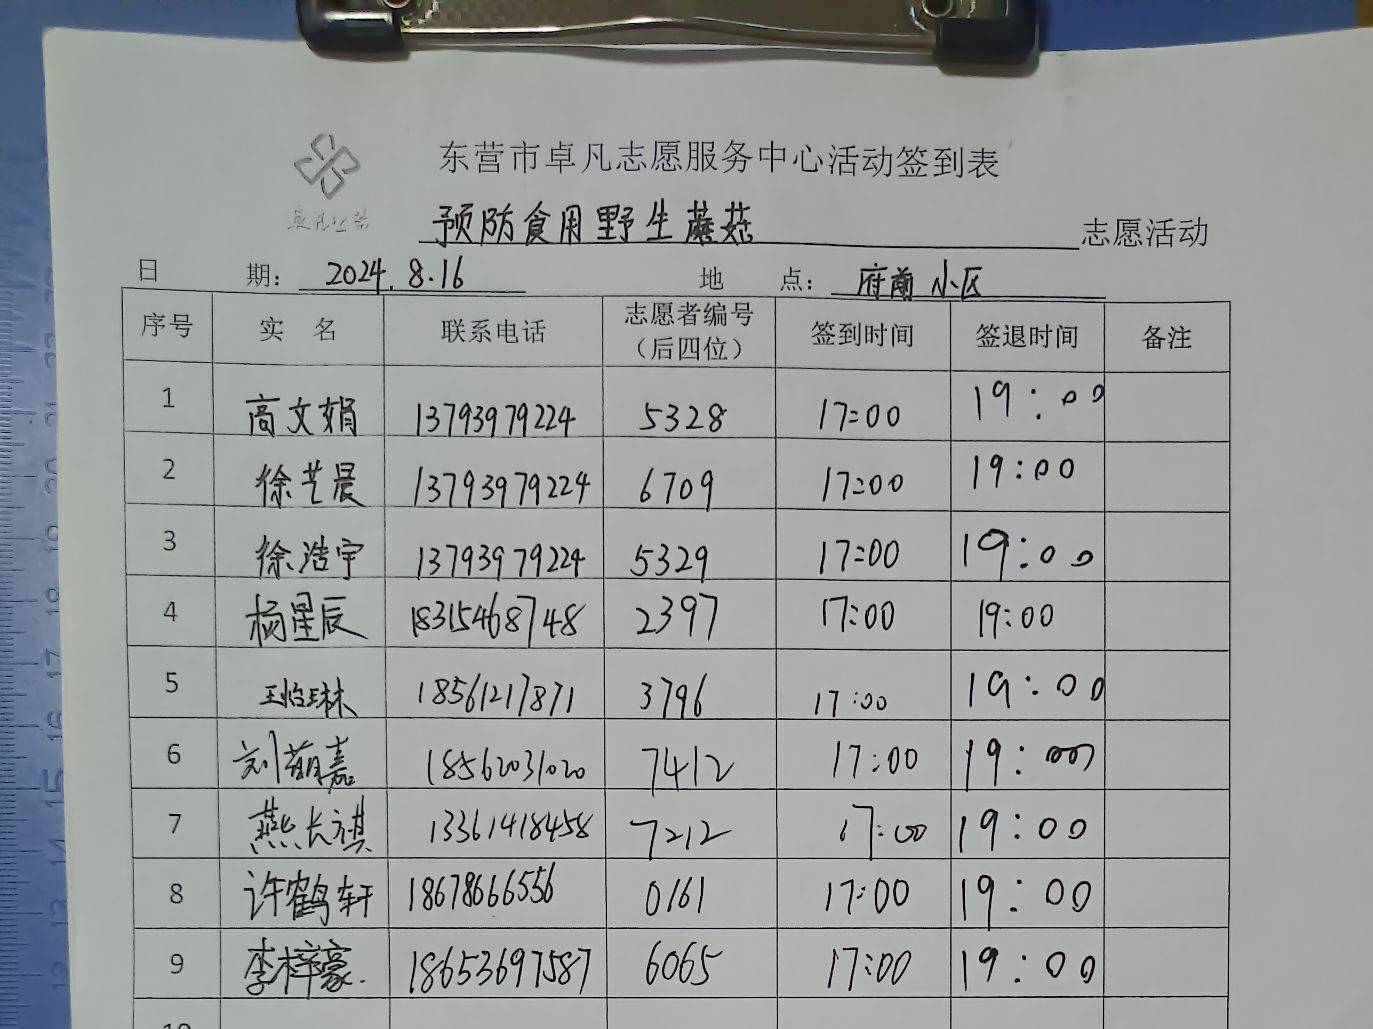 东营市卓凡志愿服务中心活动签到表
预防食用野生蘑菇 志愿活动
日 期： 2024.8.16 地 点： 府前小区
序号 实 名 联系电话 志愿者编号（后四位） 签到时间 签退时间 备注
1 高文娟 13793979224 5328 17:00 19:00
2 徐艺晨 13793979224 6709 17:00 19:00
3 徐浩宇 13793979224 5329 17:00 19:00
4 杨星辰 18315468748 2397 17:00 19:00
5 王怡琳 18561217871 3796 17:00 19:00
6 刘萌嘉 18562031020 7412 17:00 19:00
7 燕长祺 13361418458 7212 17:00 19:00
8 许鹤轩 18678666556 0161 17:00 19:00
9 李梓豪. 18653697587 6065 17:00 19:00